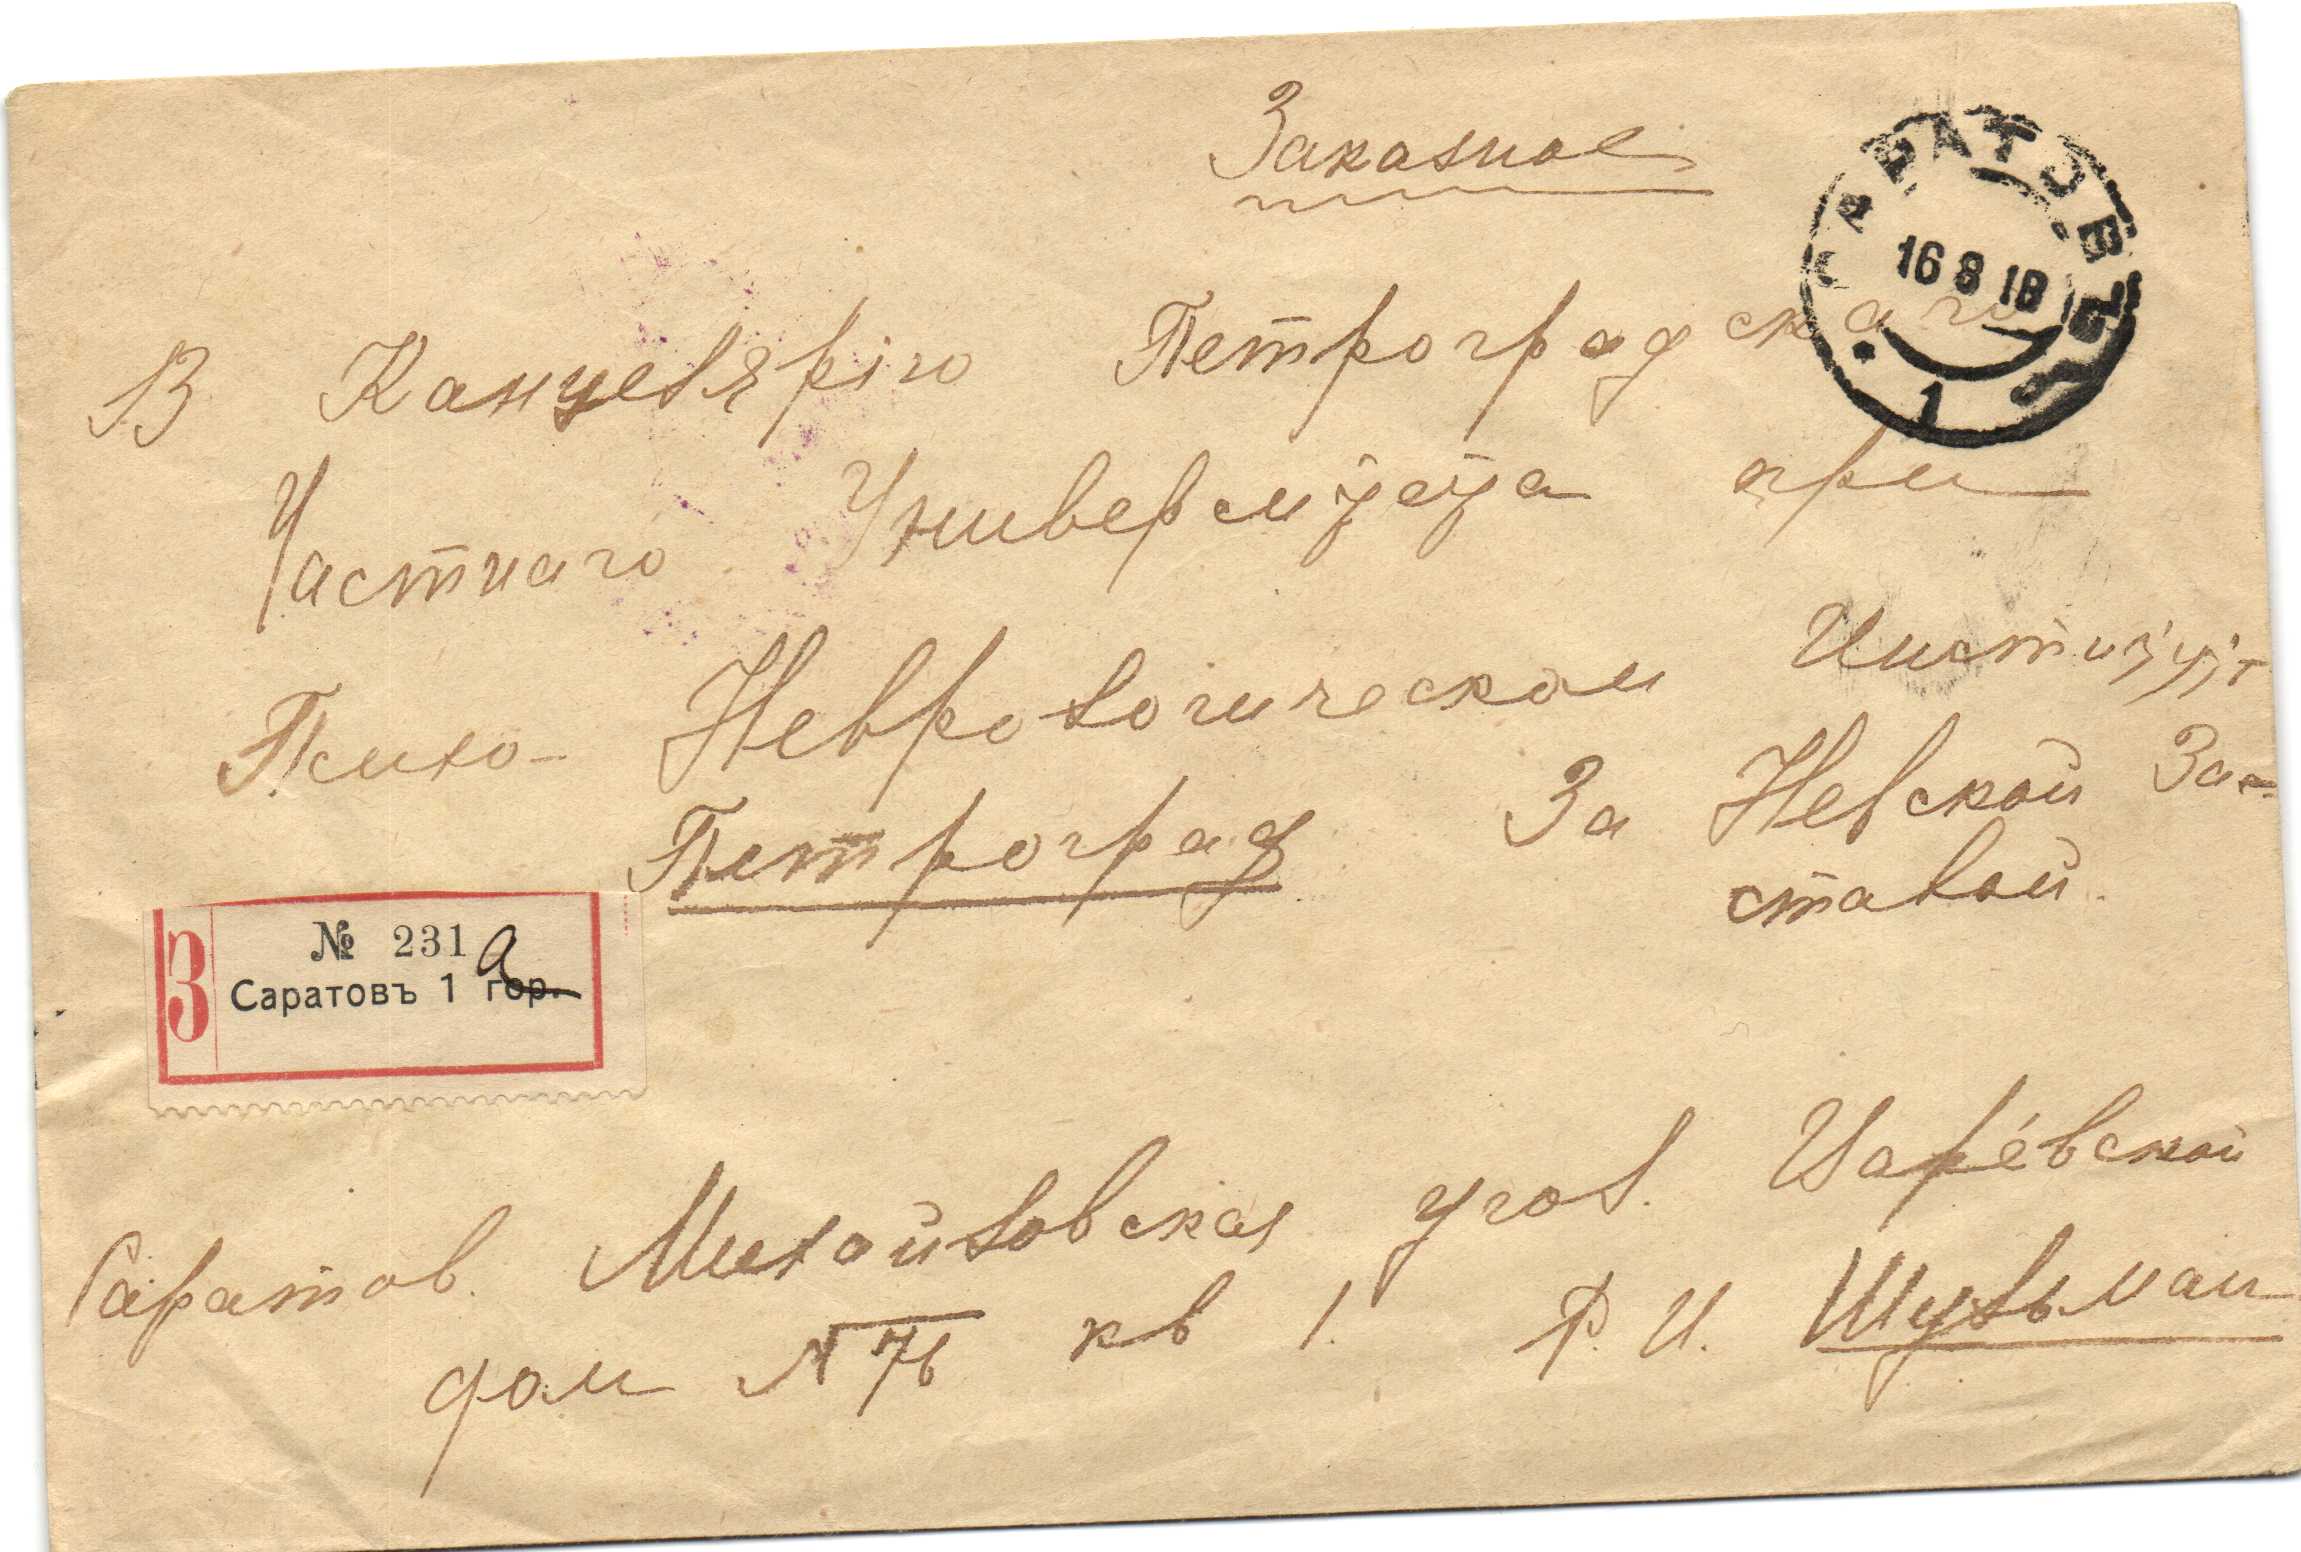 Заказное
САРАТОВЪ
16 8 18
1
В Канцелярію Петроградскаго
Частнаго Университета при
Психо- Неврологическом Институт
Петроград За Невской За-
ставой.
З
№ 231 a
Саратовъ 1 гор.
Саратов. Михайловская угол. Царевской
дом N 76 кв 1. Р. И. Шульман